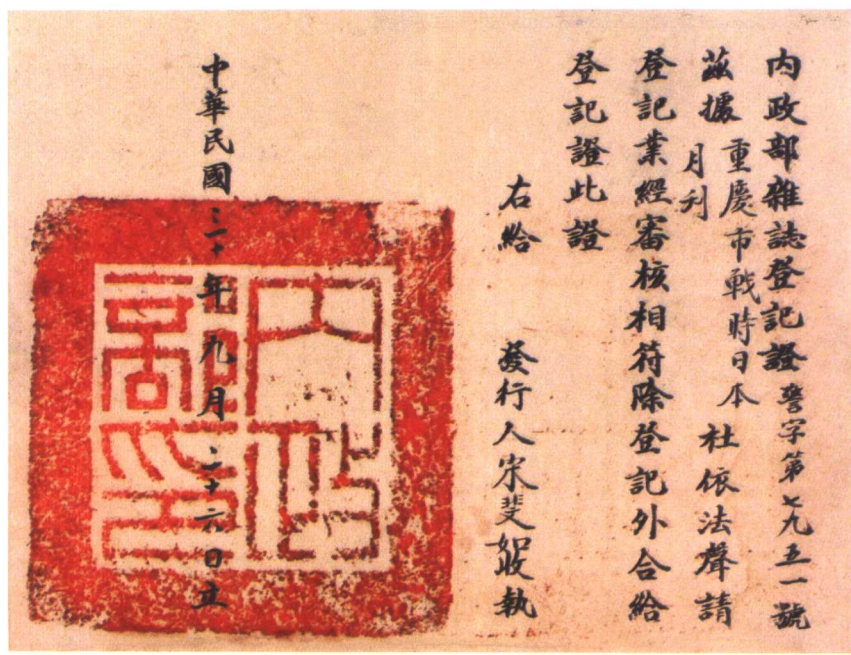 內政部雜誌登記證警字第七九五一號
茲據重慶市戰時日本月刊社依法聲請
登記業經審核相符除登記外合給
登記證此證
右給 發行人宋斐如收執
中華民國三十年九月二十六日立
內政部印